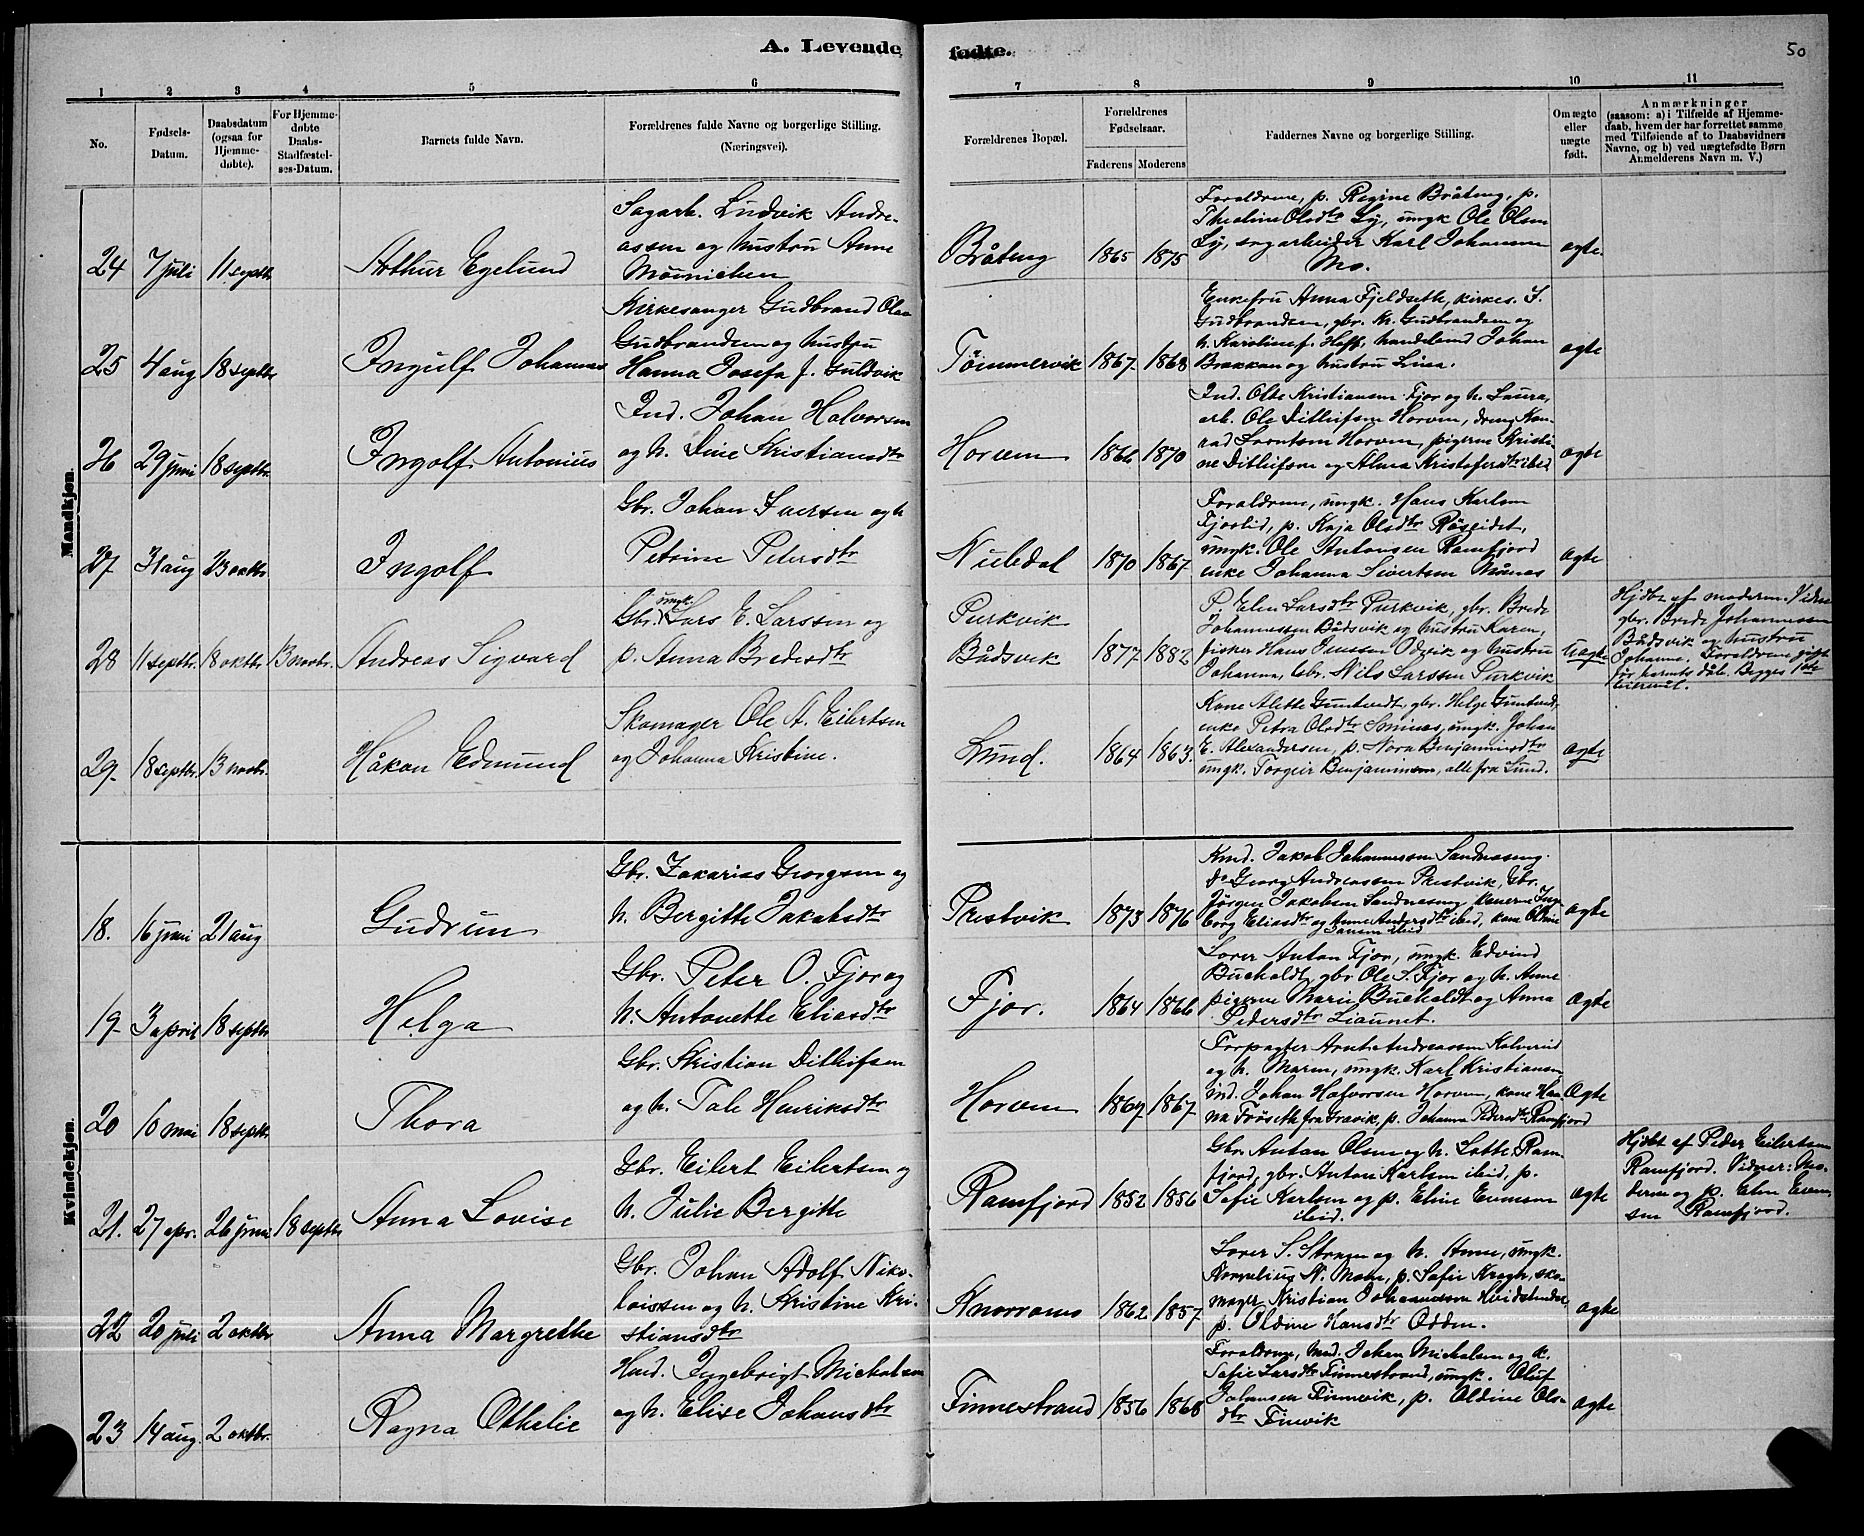 A. Levende fødte.
50
1 2 3 4 5 6 7 8 9 10 11
No.
Fødsels-Datum.
Daabsdatum (ogsaa for Hjemme-døbte).
For Hjemme-døbte Daabs-Stadfæstel-ses-Datum.
Barnets fulde Navn.
Forældrenes fulde Navne og borgerlige Stilling. (Næringsvei).
Forældrenes Bopæl.
Forældrenes Fødselsaar.
Faderens Moderens
Faddernes Navne og borgerlige Stilling.
Om ægte eller uægte født.
Anmærkninger (saasom: a) i Tilfælde af Hjemme-daab, hvem der har forrettet samme med Tilføiende af to Daabsvidners Navne, og b) ved uægtefødte Børn Anmelderens Navn m. V.)
Mandkjøn.
24 7 juli 11 septbr. Arthur Egelund
Sagarb. Ludvik Andre-
assen og hustru Anne
Mønnichen
Bråteng 1865 1875
Foraldrene, p. Regine Bråteng, p.
Thealine Olsdtr Ly, ungk Ole Olsen
Ly, sagarbeider Karl Johansen
Mo.
ægte.
25 4 aug 18 septbr Ingulf Johannes
Kirkesanger Gudbrand Olsen
Gudbrandsen og hustru
Hanna Josefa f. Guldvik
Tømmervik 1867 1868
Enkefru Anna Fjeldseth, kirkes. S.
Gudbrandsen, gbr. Kr. Gudbrandsen og
h. Karoline f. Hoff, handelsmd Johan
Brækkan og hustru Lina.
ægte
26 29 juni 18 septbr. Ingolf Antonius
Ind. Johan Halvorsen
og h. Dine Kristiansdtr
Horven 1866 1870
Ind. Olde Kristiansen Fjor og h. Laura,
arb. Ole Ditlefsen Horven, dreng Kon-
rad Lorntsen Horven, pigerne Kristi-
ne Ditlefsen og Alma Kristofersdtr ibid.
ægte
27 31 aug 23 oktbr. Ingolf
Gbr. Johan Iversen og h
Petrine Petersdtr
Nubdal 1870 1867
Foraldrene, ungk. Hans Karlsen
Fjorlid, p. Kaja Olsdtr Røseidet,
ungk. Ole Antonsen Ramfjord
enke Johanna Sivertsen Månes
ægte
28 11 septbr. 18 oktbr. 13 novbr. Andreas Sigvard
Gbr. ungk. Lars E. Larssen og
p. Anna Bredesdtr
Purkvik
Bådsvik 1877 1882
P. Elen Larsdtr Purkvik, gbr. Brede
Johannessen Bådsvik og hustru Karen,
fisker Hans Jenssen Odvik og hustru
Johanna, Gbr. Nils Larssen Purkvik
uægte
Hjdbt af moderen. Vidner
gbr. Brede Johannessen
Bådsvik og hustru
Johanne. Foraldrene gift
før barnets dåb. Begges 1ste
leiermål.
29. 18 septbr. 13 novbr. Håkon Edmund
Skomager Ole A. Eilertsen
og Johanna Kristine.
Lund. 1864 1863.
Kone Alette Gunlund, gbr. Helge Gunlund,
enke Petra Olsdtr Sminas, ungk. Johan
E. Alexandersen, p. Nora Benjaminsdtr
ungk. Torgeir Benjaminsen, alle fra Lund.
ægte
Kvindekjøn.
18. 16 juni 21 aug Gudrun
Gbr. Zakarias Georgsen og
h. Bergitte Jakobsdtr
Prestvik 1873 1876
Kmd. Jakob Johannessen Sandnaseng.
Do Georg Andreassen Prestvik, Gbr.
Jørgen Jakobsen Sandnaseng konerne Inge-
borg Eliasdtr og Anne Andersdtr ibid, kone Oldine
Jansen ibid
ægte
19. 3 april 18 septbr. Helga
Gbr. Peter O. Fjor og
h. Antonette Eliasdtr
Fjor. 1864 1866
Lorer Anton Fjor, ungk. Edvind
Bucholdt, gbr Ole S. Fjor og h. Anne
pigerne Marie Bucholdt og Anna
Pedersdtr Liaunet.
ægte
20 10 mai 18 septbr Thora
Gbr. Kristian Ditlefsen
og h. Tale Henriksdtr
Horven 1867 1867
Forpagter Arnt Andreassen Kalverid
og h. Maren, ungk. Karl Kristiansen,
ind. Johan Halvorsen Horven, kone Han-
na Frøseth fra Gravik, p. Johanna Pedersdtr Ramfjord
Ægte
21. 27 apr. 26 juni 18 septbr Anna Lovise
Gbr. Eilert Eilertsen og
h. Julie Bergitte
Ramfjord 1852 1856
Gbr. Anton Olsen og h. Lotte, Ram-
fjord, gbr. Anton Karlsen ibid, p.
Sofie Karlsen og p. Eline Evensen
ibid.
ægte
Hjdbt af Peder Eilertsen
Ramfjord. Vidner: Mo-
deren og p. Elen Even-
sen Ramfjord.
22 20 juli 2 oktbr Anna Margrethe
Gbr. Johan Adolf Niko-
laissen og h. Kristine Kri-
stiansdtr
Knorrans 1862 1857
Lorer S. Strøm og h. Anne, ungk.
Kornelius N. Moen, p. Sofie Krogh, sko-
mager Kristian Johannssen Hvidstenden,
p. Oldine Hansdtr Odden.
ægte
23 14 aug. 2 oktbr. Ragna Othelie
Hmd. Ingebrigt Mickalsen
og h. Elise Johansdtr
Finnestrand 1856 1868
Foraldrene, hmd. Johan Mickalsen og k.
Sofie Larsdtr Finnestrand, ungk. Oluf
Johansen Finnvik, p. Oldine Ols-
dtr Finvik
ægte